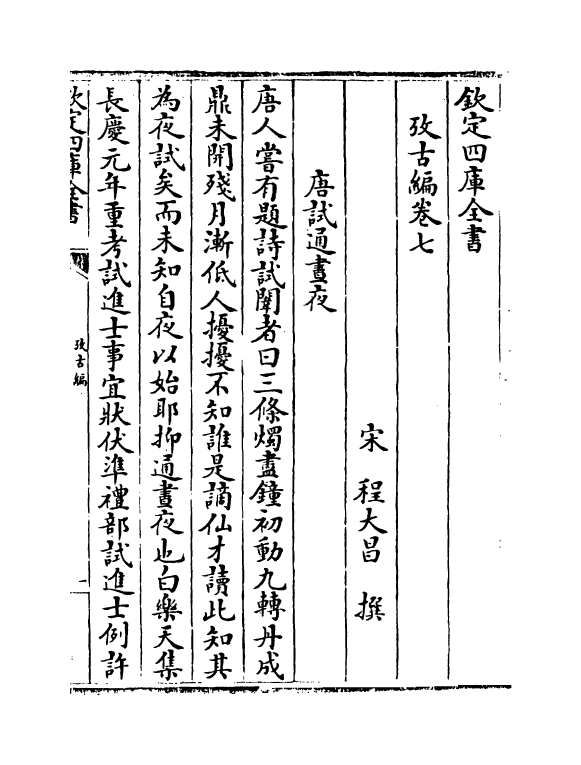 欽定四庫全書
攷古編卷七
宋 程大昌 撰
唐試通晝夜
唐人嘗有題詩試闈者曰三條燭盡鐘初動九轉丹成
鼎未開殘月漸低人擾擾不知誰是謫仙才讀此知其
為夜試矣而未知自夜以始耶抑通晝夜也白樂天集
長慶元年重考試進士事宜狀伏準禮部試進士例許
欽定四庫全書
攷古編
一